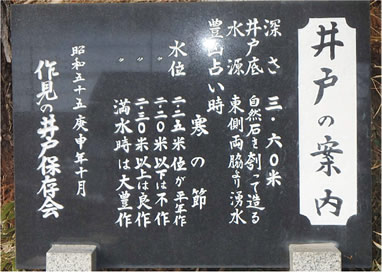 井戸の案内
深さ 三・六〇米
井戸底 自然石を刳って造る
水源 東側両脇より湧水
豊凶占い時 寒の節
水位 二・二五米位が平年作
〃 二・二〇米以下は不作
〃 二・三〇米以上は良作
〃 満水時は大豊作
昭和五十五庚申年十月
作見の井戸保存会